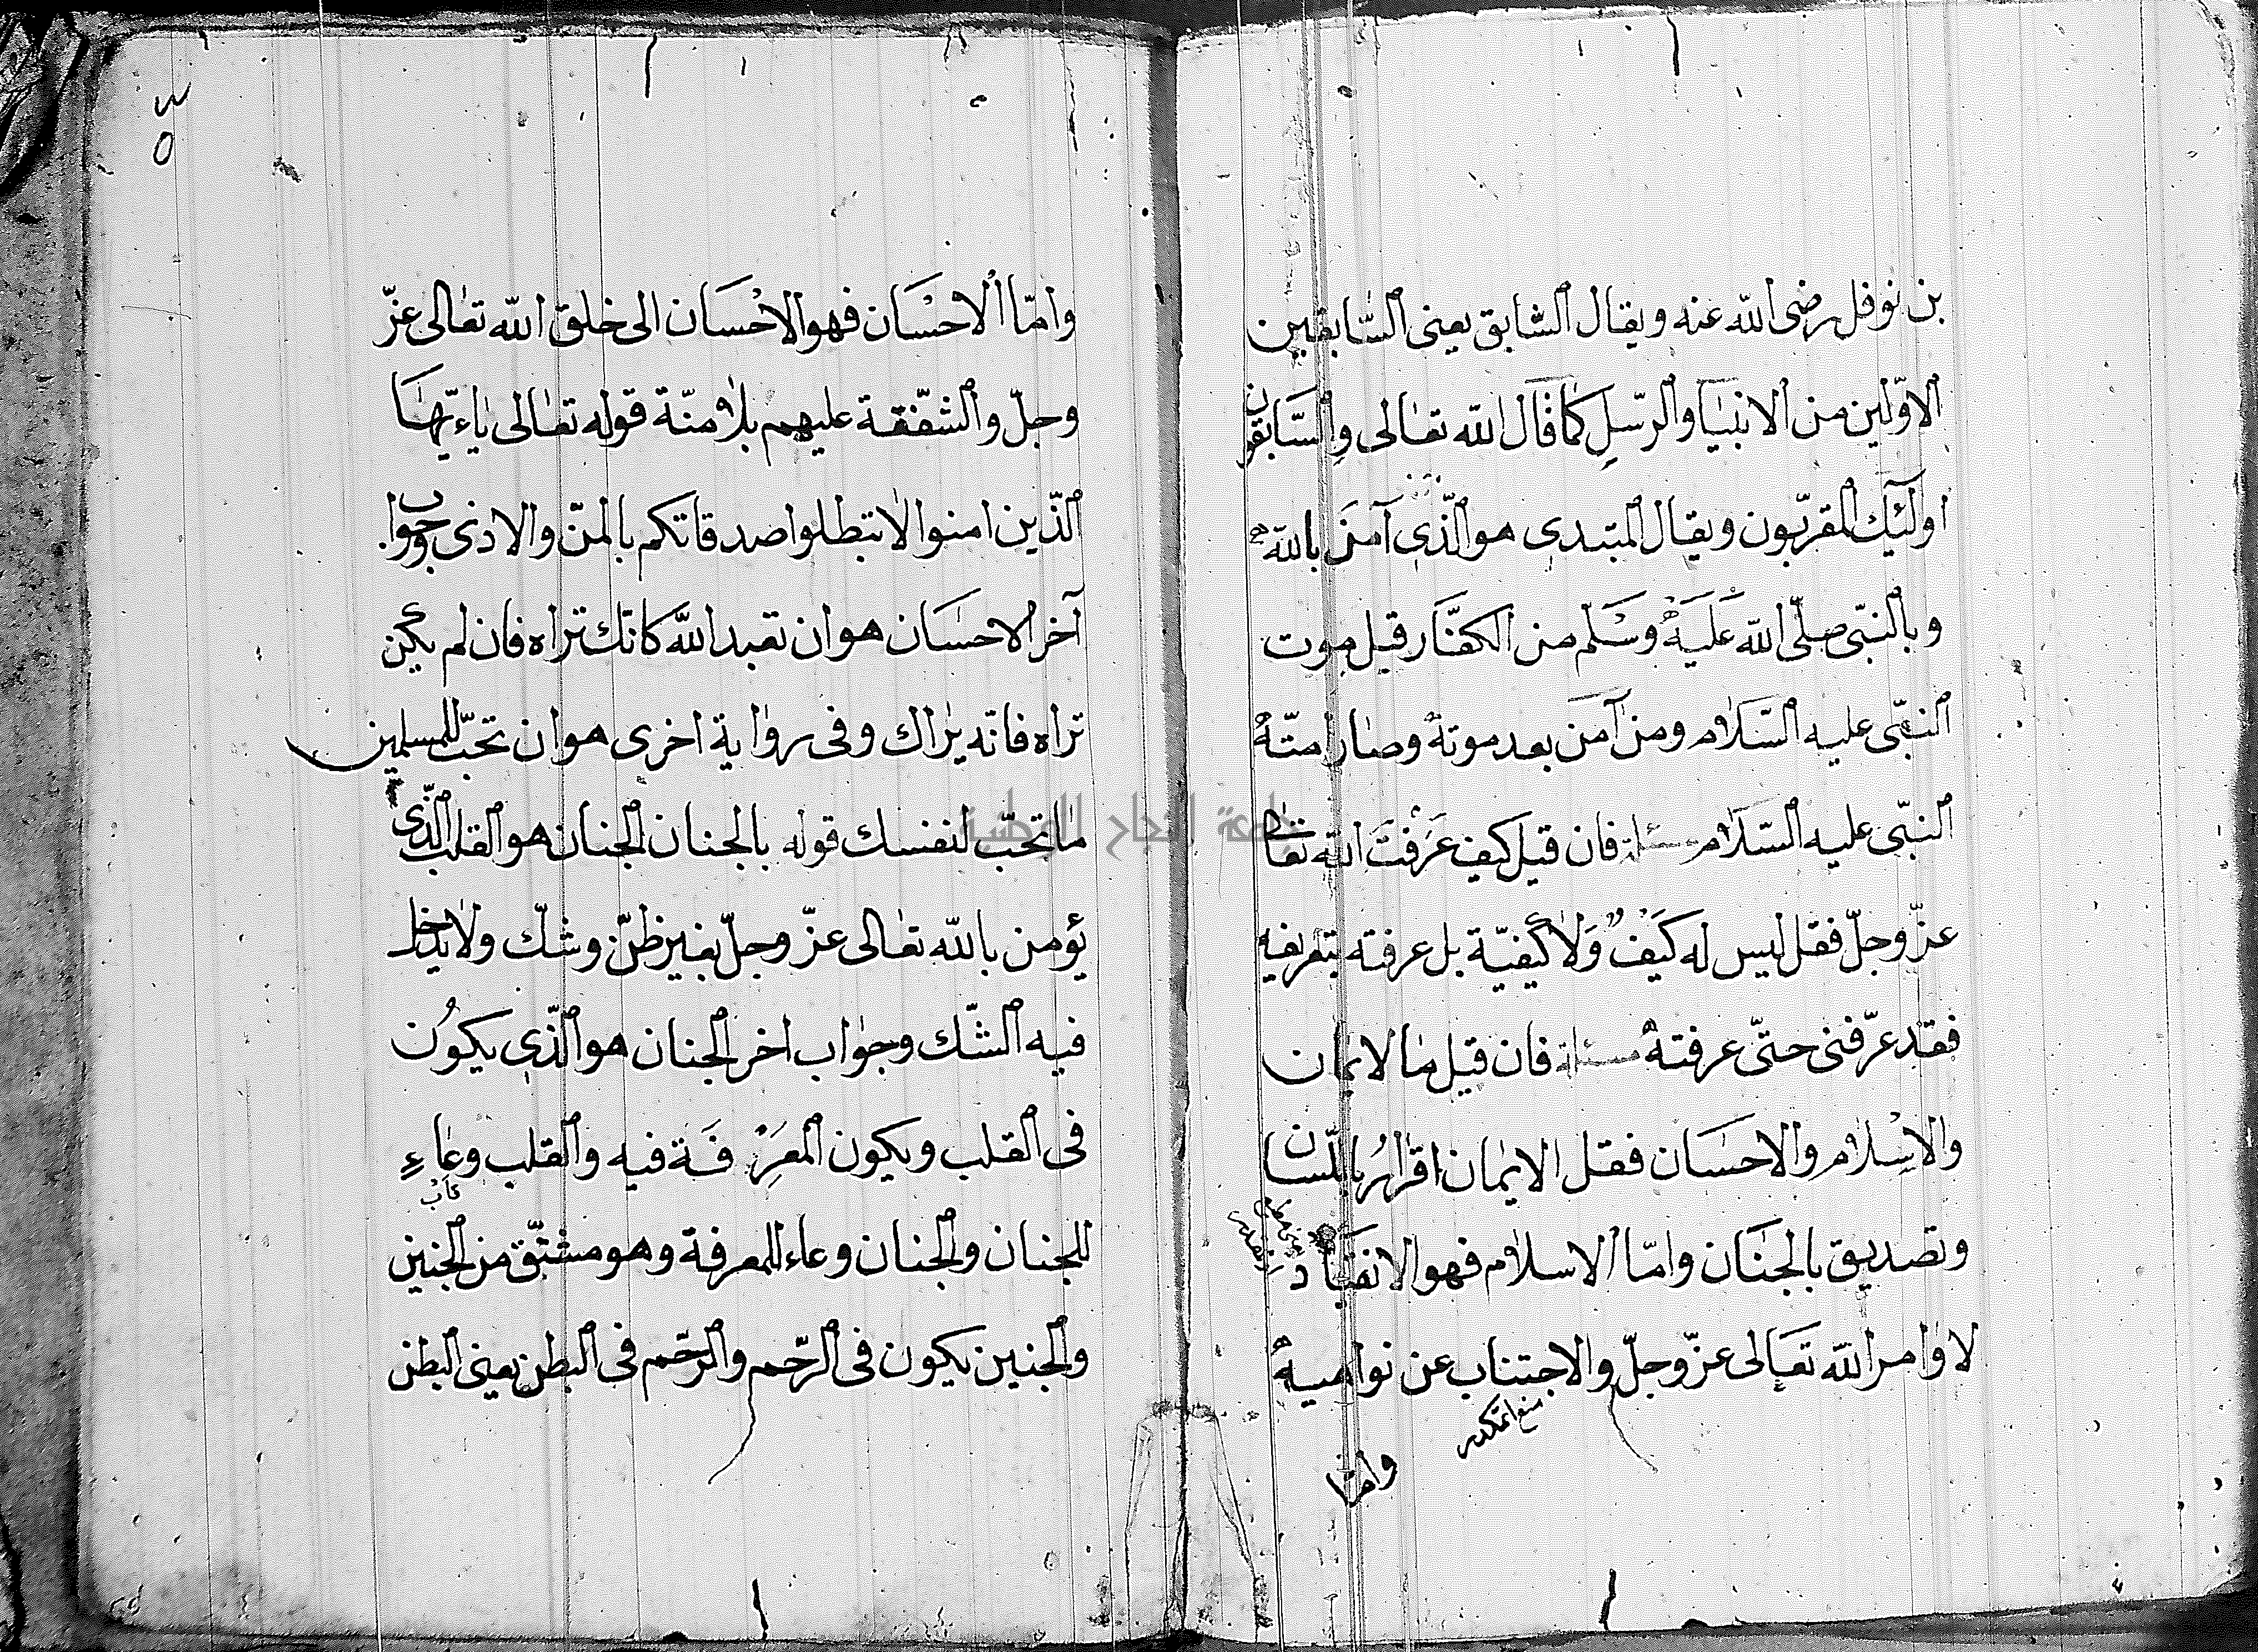 بن نوفل رضى الله عنه ويقال السّابق يعنى السّابقين
الاوّلين من الانبيا والرّسل كما قال الله تعالى والسّابقون
اولئك المقرّبون ويقال المبتدى هو الّذى آمن بالله
وبالنبّى صلّى الله عليه وسلّم من الكفّار قبل موت
النبّى عليه السّلام ومن آمن بعد موته وصار امّته
النبّى عليه السّلام مسئلة فان قيل كيف عرفت الله تعالى
عزّ وجلّ فقل ليس له كيف ولا كيفيّة بل عرفته بتعريفه
فقد عرّفنى حتّى عرفته مسئلة فان قيل ما الايمان
والاسلام والاحسان فقل الايمان اقرار باللّسان
وتصديق بالجنان وامّا الاسلام فهو الانقياد
لاوامر الله تعالى عزّ وجلّ والاجتناب عن نواهيه
وامّا
وامّا الاحْسَان فهو الاحْسَان الى خلق الله تعالى عزّ
وجلّ والشفّقة عليهم بلا منّة قوله تعالى ياءيّها
الذّين امنوا لا تبطلوا صدقاتكم بالمنّ والاذى وجواب
آخر الاحسان هو ان تعبد الله كانّك تراه فان لم يكن
تراه فانّه يراك وفى رواية اخرى هو ان تحبّ للمسلمين
ما تحبّ لنفسك قوله بالجنان الجنان هو القلب الذّى
يؤمن بالله تعالى عزّ وجلّ بغير ظنّ وشكّ ولا يدخل
فيه الشّك وجواب اخر الجنان هو الذّى يكون
فى القلب ويكون المعرفة فيه والقلب وعاء
للجنان والجنان وعاء للمعرفة وهو مشتّق من الجنين
والجنين يكون فى الرّحم والرّحم فى البطن يعنى البطن